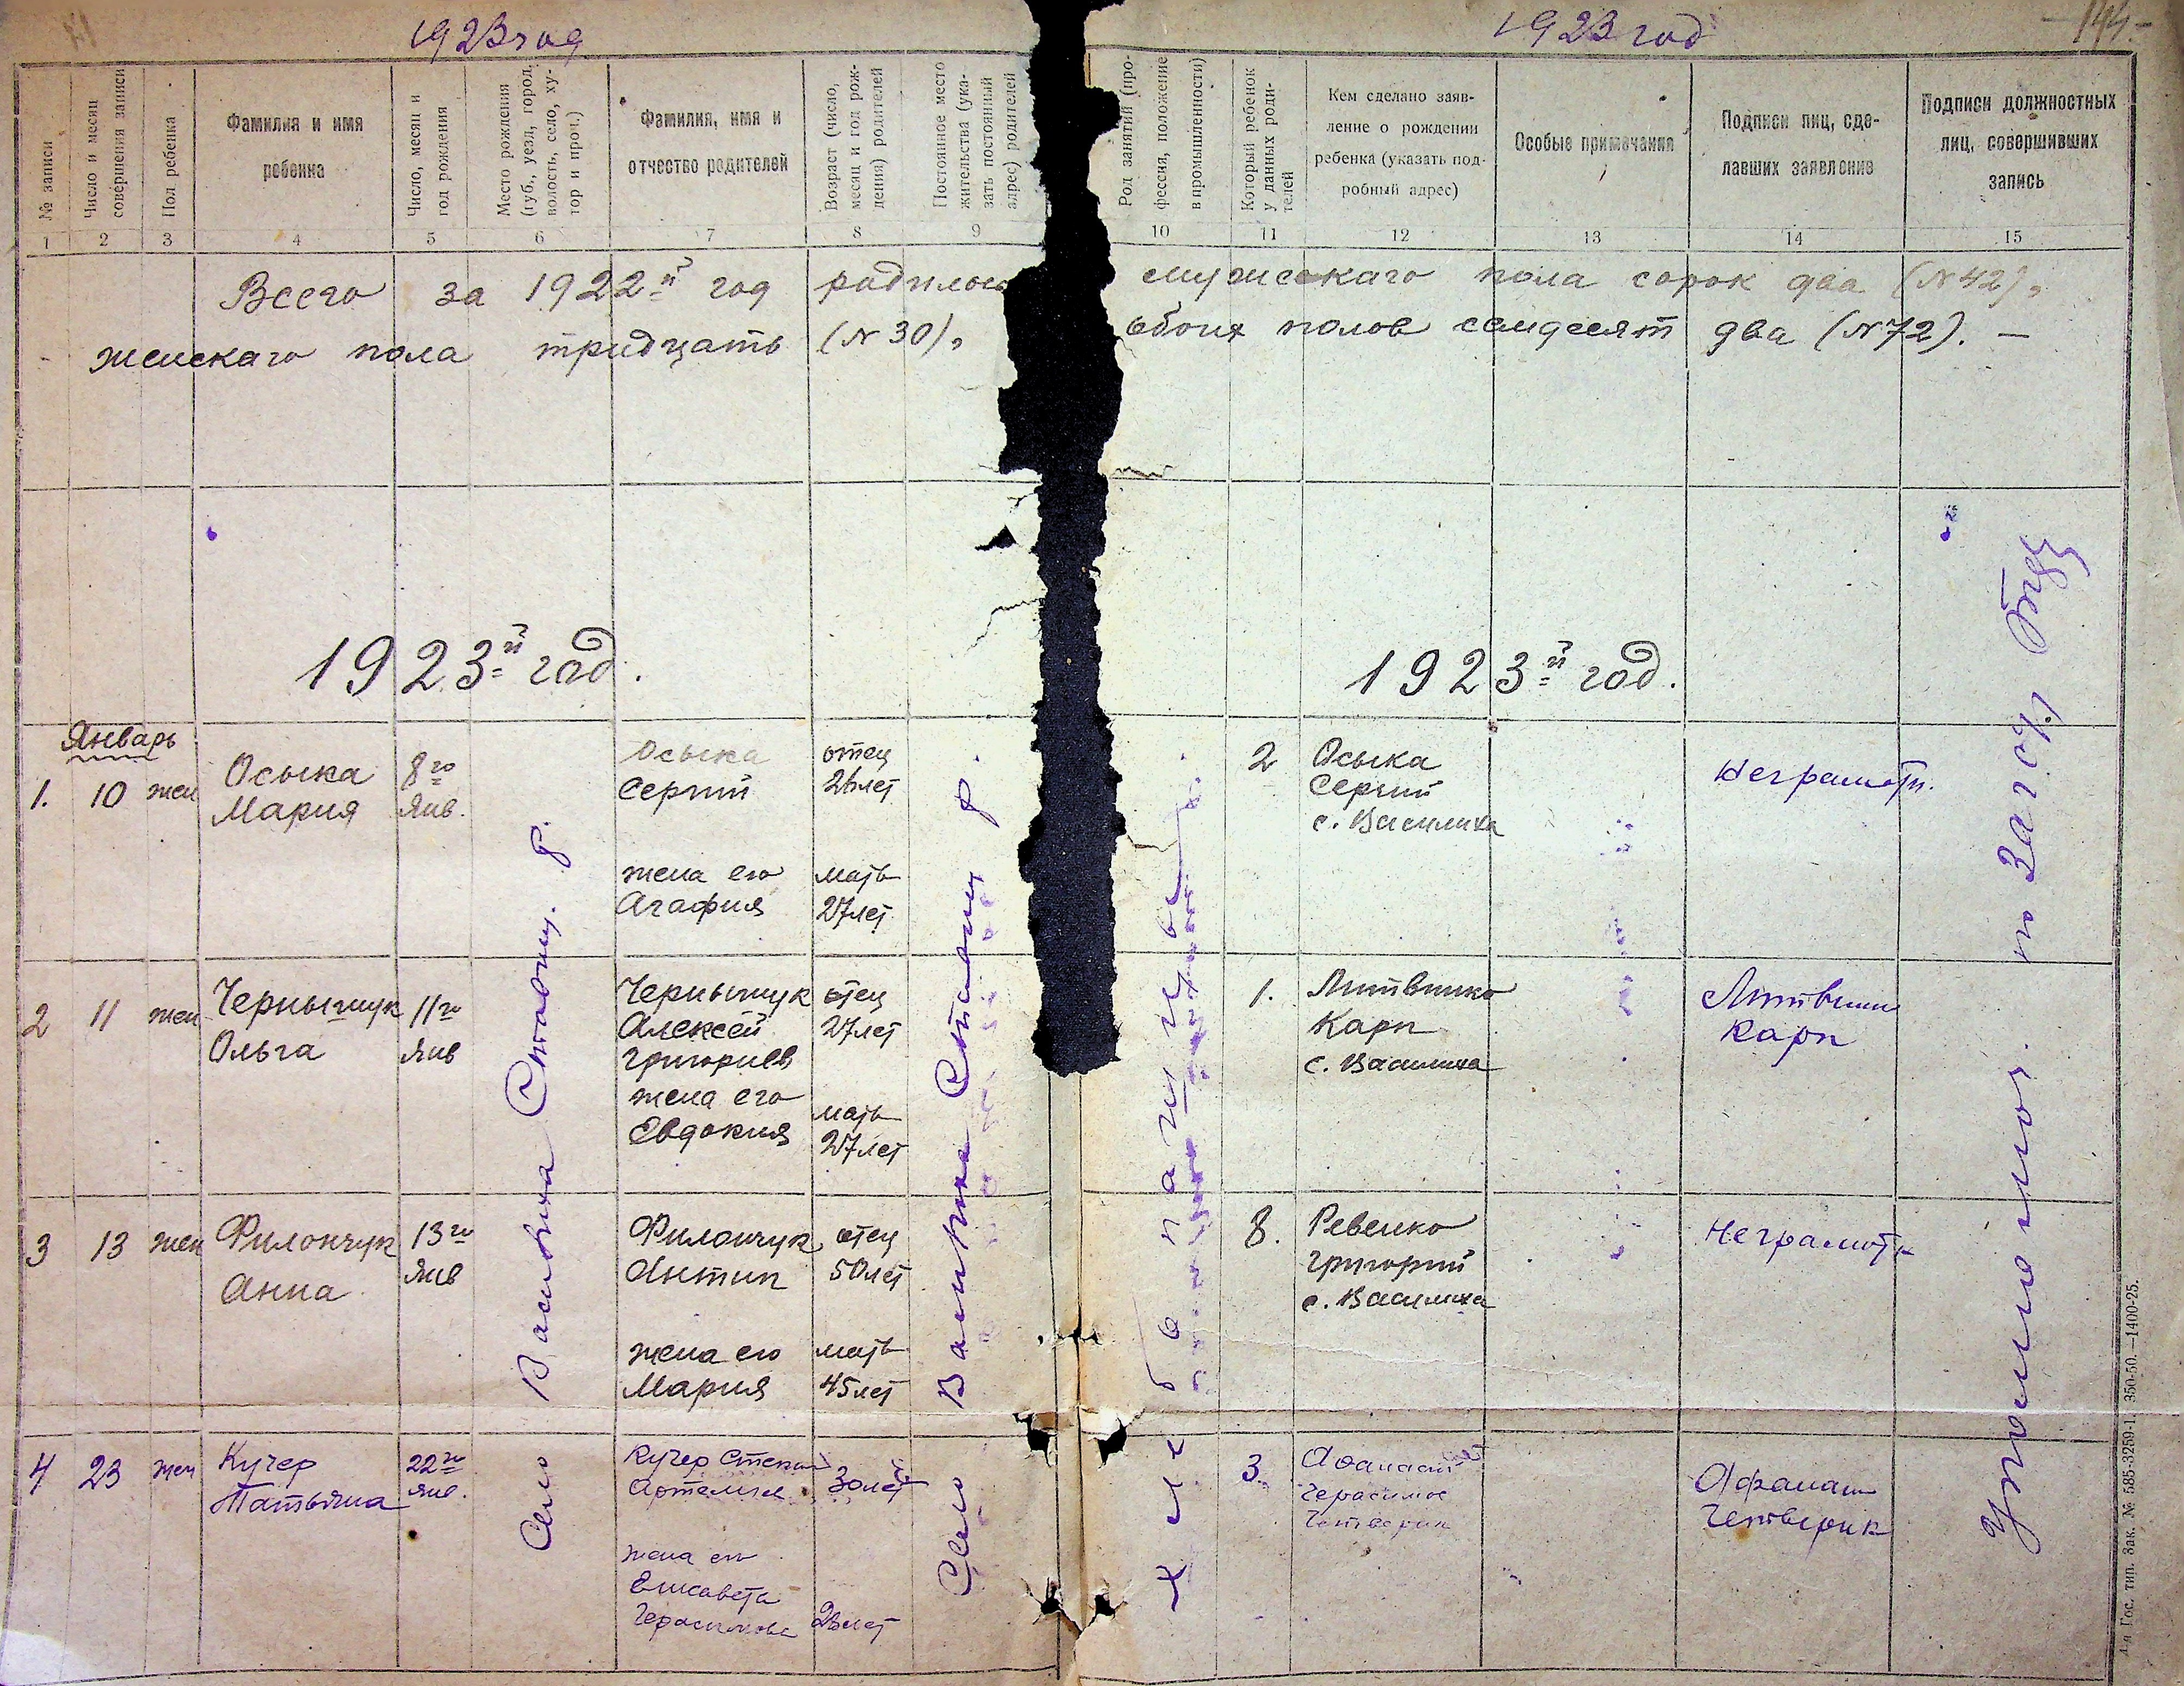 1923 год
1923 год
- 144. -
№ записи
Число и месяц
совершения записи
Пол ребенка
Фамилия и имя
ребенка
Число, месяц и
год рождения
Место рождения
(губ., уезд, город,
волость, село, ху-
тор и проч.)
Фамилия, имя и
отчество родителей
Возраст (число,
месяц и год рож-
дения) родителей
Постоянное место
жительства (ука-
зать постоянный
адрес) родителей
Род занятий (про-
фессия, положение
в промышленности)
Который ребенок
у данных роди-
телей
Кем сделано заяв-
ление о рождении
ребенка (указать под-
робный адрес)
Особые примечания
Подписи лиц, сде-
лавших заявление
Подписи должностных
лиц, совершивших
запись
1 2 3 4 5 6 7 8 9 10 11 12 13 14 15
Всего за 1922й год родилось мужескаго пола сорок два (№ 42),
женскаго пола тридцать (№ 30), обоих полов семдесят два (№ 72). —
1923й год.
1923й год.
Январь
1. 10 жен
Осыка
Мария
8го
Янв.
Осыка
Сергий
отец
26 лет
жена его
Агафия
мать
27 лет
2
Осыка
Сергий
с. Василиха
Неграмотн.
2 11 жен
Чернышук
Ольга
11го
Янв
Чернышук
Алексей
Григориев
отец
27 лет
жена его
Евдокия
мать
27 лет
1.
Литвинко
Карп
с. Василиха
Литвин
Карп
3 13 жен
Филончук
Анна
13го
Янв
Филончук
Антип
отец
50 лет
жена его
Мария
мать
45 лет
8.
Ревенко
Григорий
с. Василиха
Неграмотн
4 23 жен
Кучер
Татьяна
22го
янв.
Кучер Степан
30 лет
жена его
Елисавета
Герасимова
28 лет
3.
Афанасий
Герасимов
Четверик
Афанаси
Четверик
Село Василиха Ставищ. р.
Село Василиха Ставищ р.
Хлебопашцы.
Уполномоч. по Загсу
Зак. № 585-3259-1. 350-50.—1400-25.